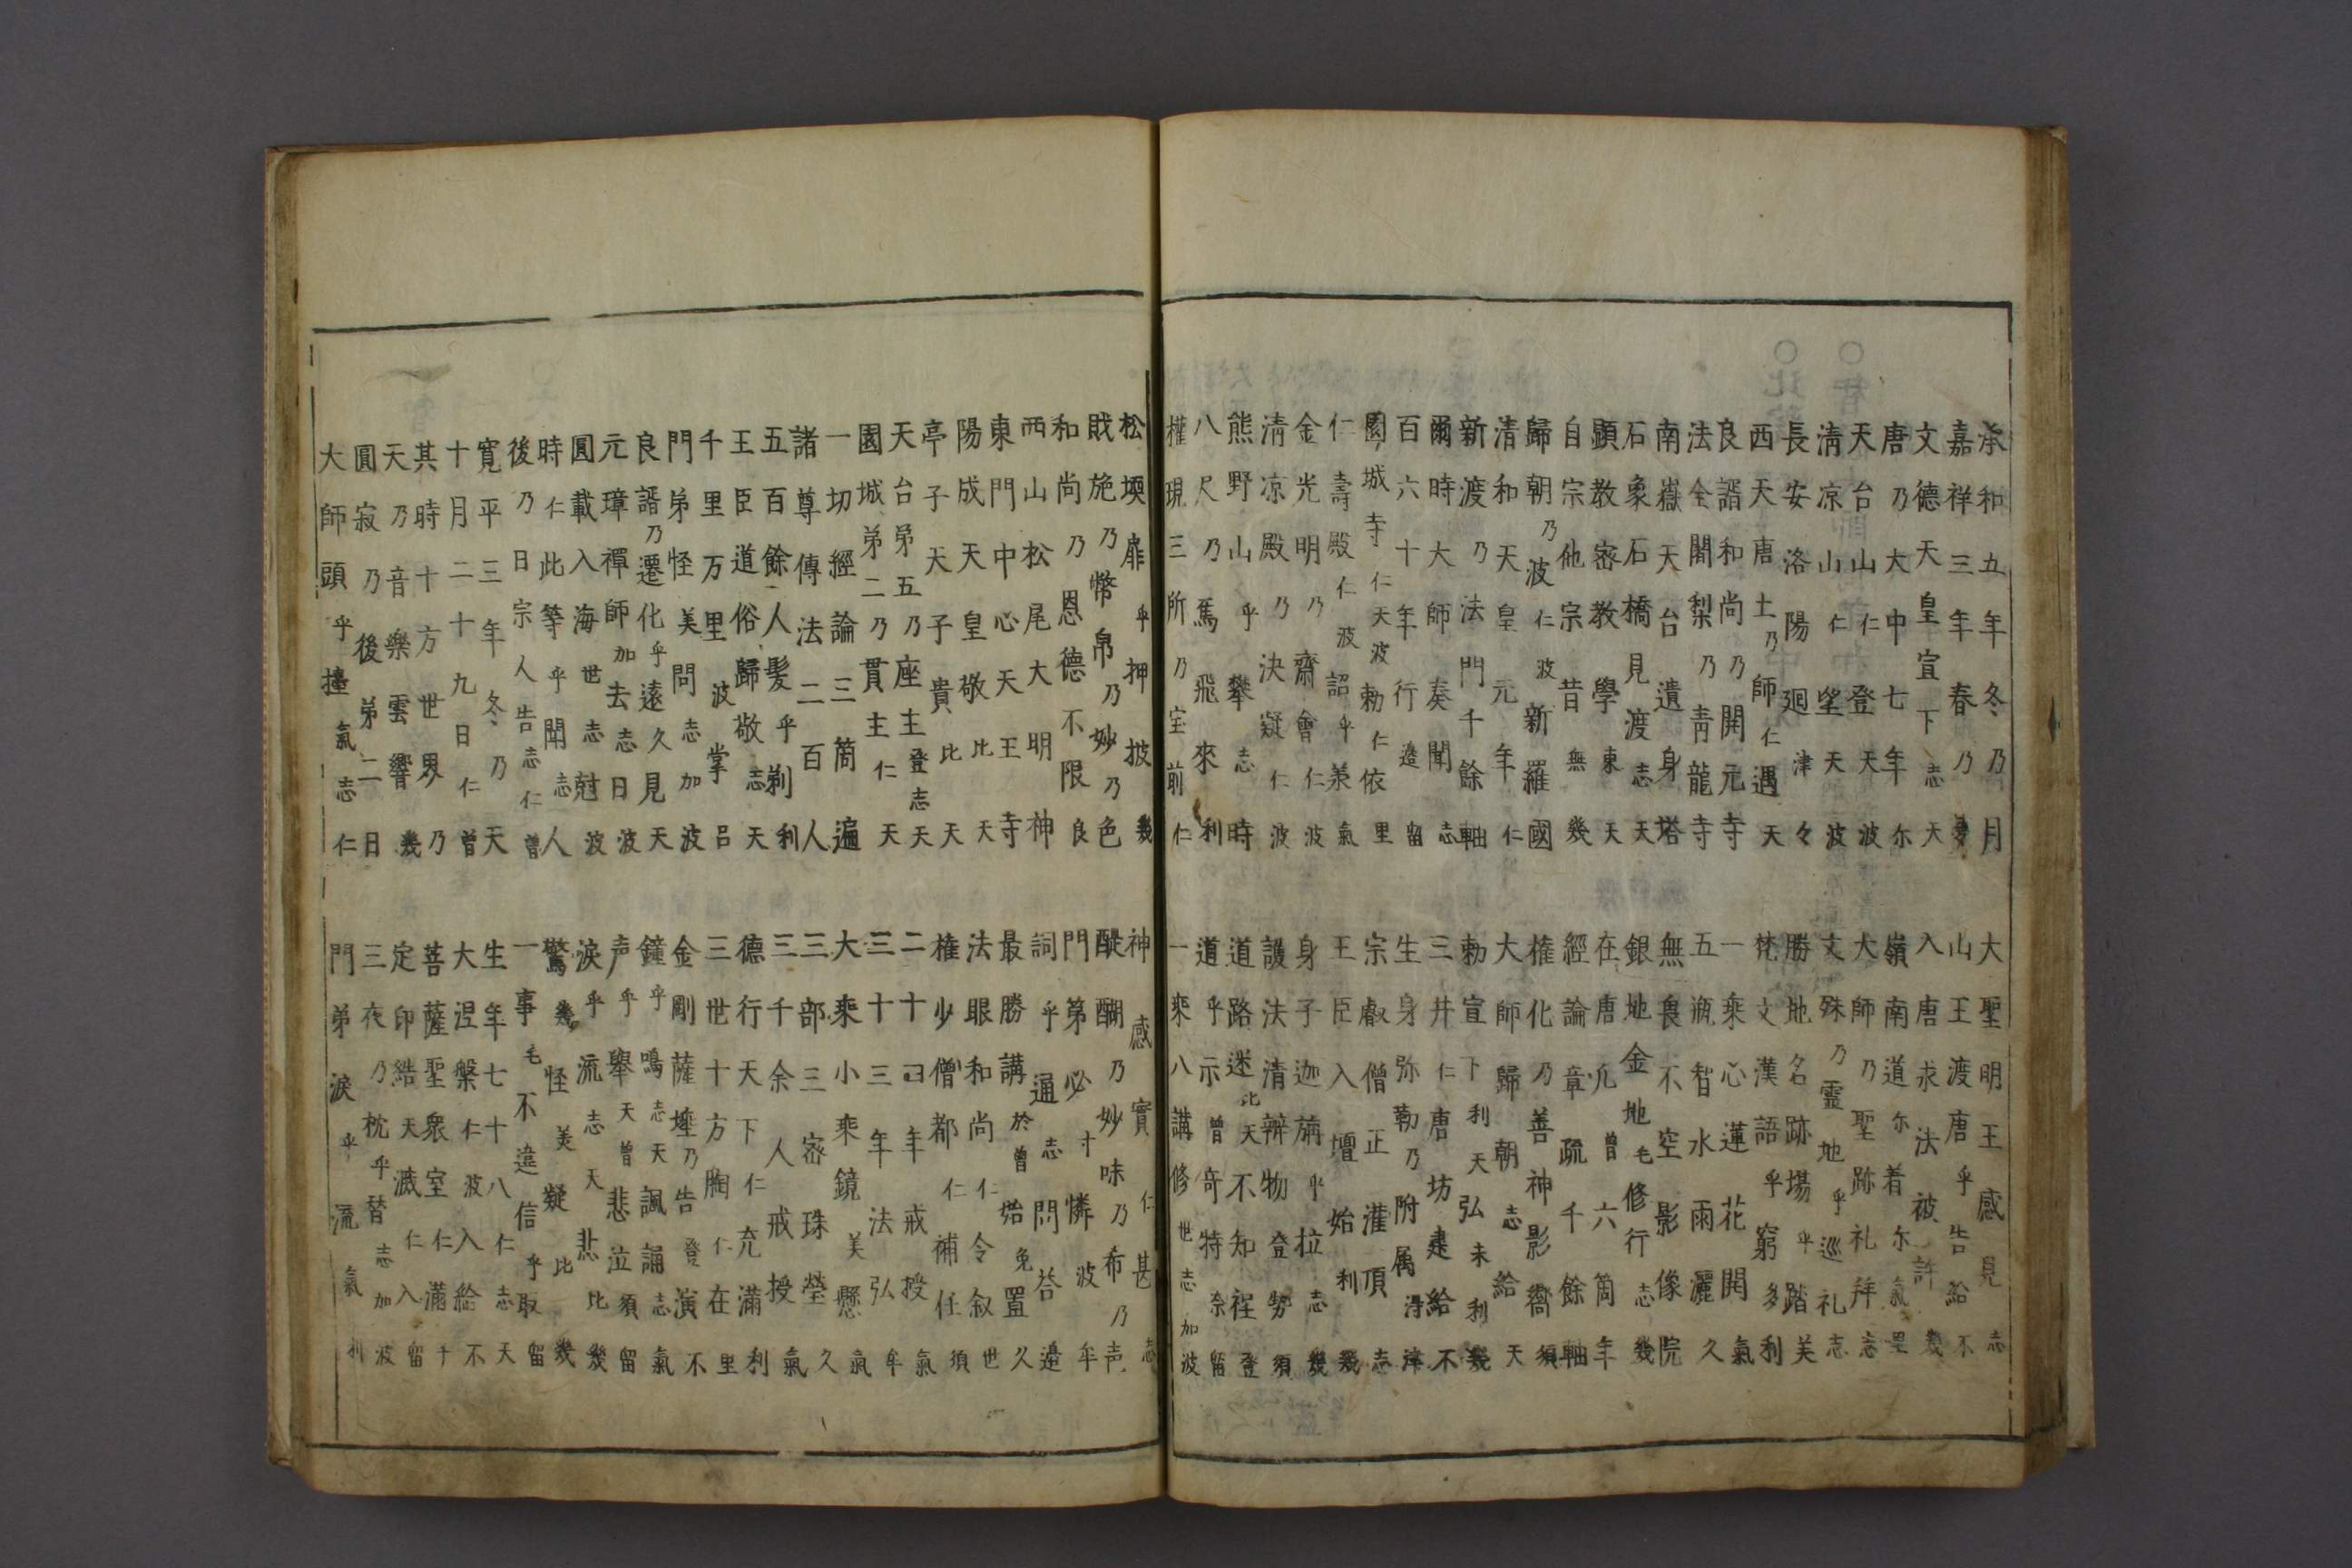 承和五年冬乃月
大聖明王乎感見志
嘉祥三年春乃夢
山王渡唐乎告給不
文德天皇宣下志天
入唐求法被許幾
唐乃大中七年尓
嶺南道尓着尓氣里
天台山仁登天波
大師乃聖跡礼拜志
清凉山仁望天波
文殊乃靈地乎巡礼志
長安洛陽廻津々
勝地名跡場乎踏美
西天唐土乃師仁遇天
梵文漢語乎窮多利
良諝和尚乃開元寺
一乘心蓮花開氣
法全闍梨乃青龍寺
五瓶智水雨灑久
南嶽天台遺身塔
無畏不空影像院
石象石橋見渡志天
銀地金地毛修行志幾
顯教密教學東天
在唐九曽六箇年
自宗他宗昔無幾
經論章疏千餘軸
歸朝乃波仁波新羅國
權化乃善神影嚮須
清和天皇元年仁
大師歸朝志給天
新渡乃法門千餘軸
勅宣下利天弘未利幾
爾時大師奏聞志
三井仁唐坊建給不
百六十年行造留
生身弥勒乃附属淂津
園城寺仁天波勅仁依里
宗叡僧正灌頂志
仁壽殿仁波詔乎羕氣
王臣入壇始利幾
金光明乃齋會仁波
身子迦旃乎拉志幾
清凉殿乃決疑仁波
護法清辨物登勢須
熊野山乎攀志時
道路迷比天不知程登
八尺乃烏飛來利
道乎示曽奇特奈留
權現三所乃宝前仁
一乘八講修世志加波
松墺扉乎押披幾
神感實仁甚志
賎施乃幣帛乃妙乃色
醍醐乃妙味乃布乃声
和尚乃恩德不限良
門第必寸憐波牟
西山松尾大明神
詞乎通志問荅邊
東門中心天王寺
最勝講於曽始免置久
陽成天皇敬比天
法眼和尚仁令叙世
亭子天子貴比天
權少僧都仁補任須
天台第五乃座主登志天
二十四年戒授氣
國城第二乃貫主仁天
三十三年法弘牟
一切經論三箇遍
大乘小乘鏡美懸氣
諸尊傳法二百人
三部三密珠瑩久
五百餘人髮乎剃利
三千余人戒授氣
王臣道俗歸敬志天
德行天下仁充滿利
千里万里波掌呂
三世十方胸仁在里
門弟怪美問志加波
金剛薩埵乃告登演不
良諝乃遷化乎遠久見天
鐘乎鳴志天諷誦志氣
元璋禪師加去志日波
声乎擧天曽悲泣須留
圓載入海世志尅波
淚乎流志天悲比幾
時仁此等乎聞志人
驚幾怪美疑比幾
後乃日宗人告志仁曽
一事毛不違信乎取留
寬平三年冬乃天
生年七十八仁志天
十月二十九日仁曽
大涅槃仁波入給不
其時十方世界乃
菩薩聖衆室仁滿千
天乃音樂雲響幾
定印結天滅仁入留
圓寂乃後第二日
三夜乃枕乎替志加波
大師頭乎擡氣志仁
門弟淚乎流氣利